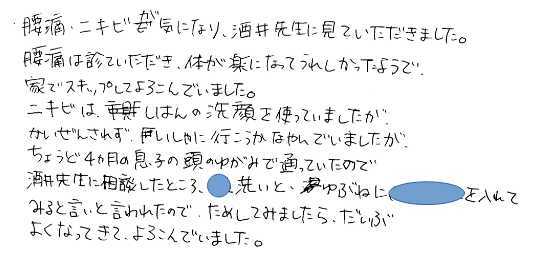 腰痛・ニキビが気になり、酒井先生に見ていただきました。
腰痛は診ていただき、体が楽になってうれしかったようで、
家でスキップしてよろこんでいました。
ニキビは、しはんの洗顔を使っていましたが、
かいぜんされず、ひふしゃに行こうかなやんでいましたが、
ちょうど4か月の息子の頭のゆがみで通っていたので
酒井先生に相談したところ、洗いと、ゆぶねに を入れて
みると言いと言われたので、ためしてみましたら、だいぶ
よくなってきて、よろこんでいました。